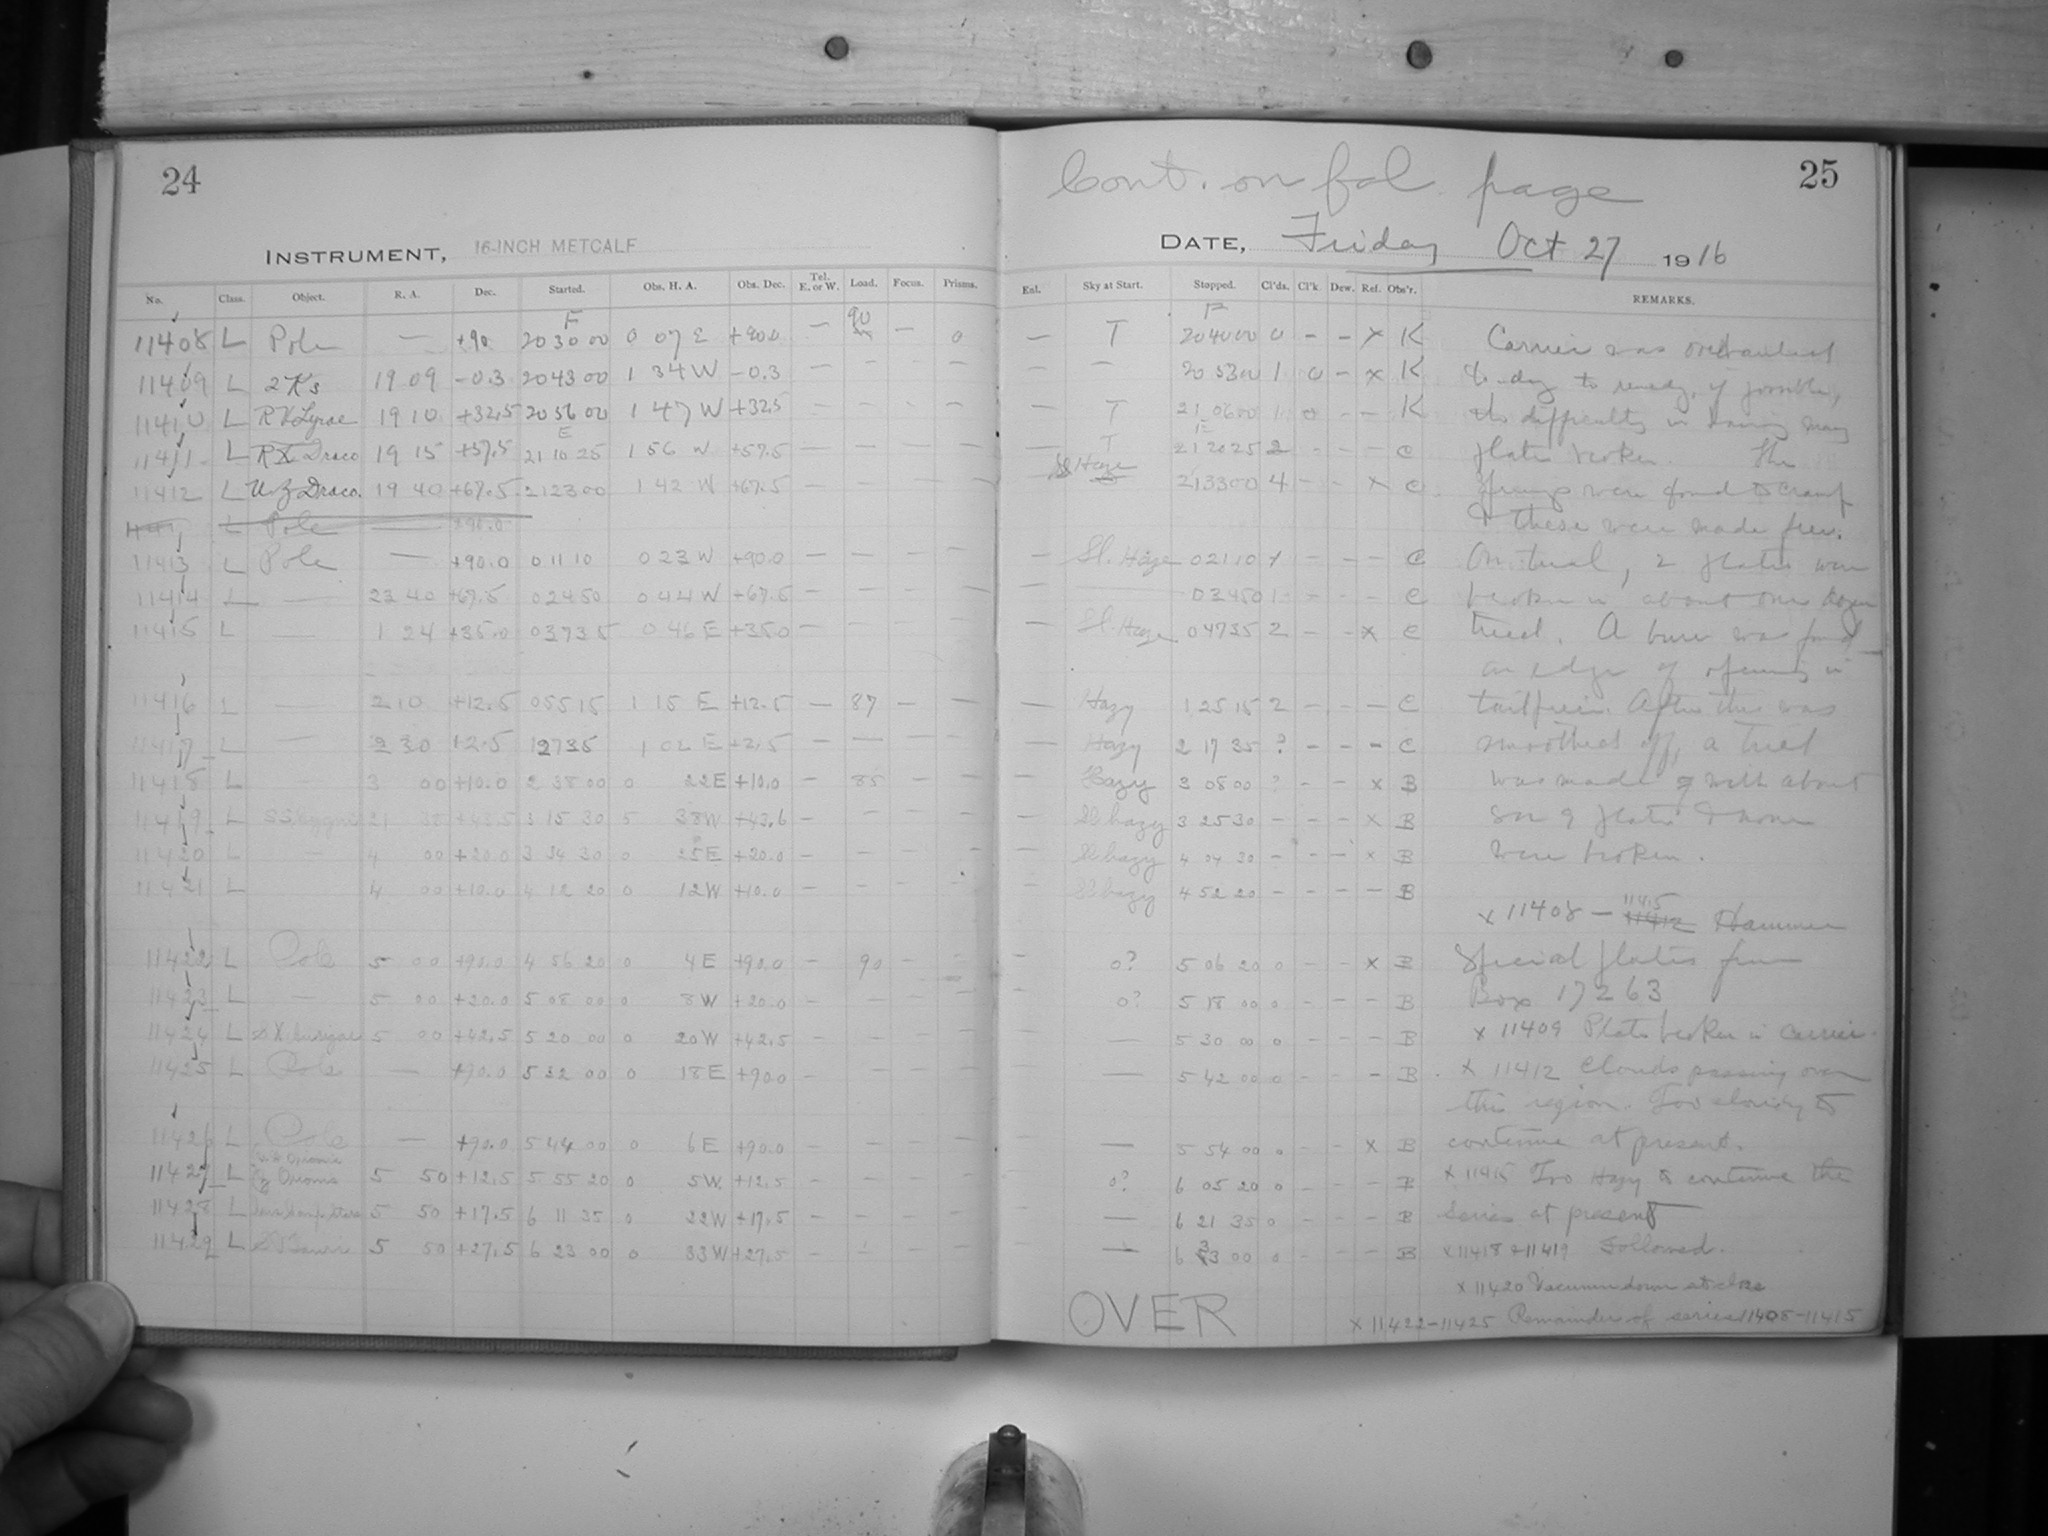 24
INSTRUMENT, 16-INCH METCALF
No. Class. Object. R. A. Dec. Started. Obs. H. A. Obs. Dec. Tel. E. or W. Load. Focus. Prisms.
11408 L Pole — +90 20 30 00 0 07 E +90.0 — 90 — 0
11409 L 2 Ks 19 09 -0.3 20 43 00 1 34 W -0.3 — — — —
11410 L RK Lyrae 19 10 +32.5 20 56 00 1 47 W +32.5 — — — —
11411 L RX Draco 19 15 +57.5 21 10 25 1 56 W +57.5 — — — —
11412 L UZ Draco. 19 40 +67.5 21 23 00 1 42 W +67.5 — — — —
L Pole — +90.0
11413 L Pole — +90.0 0 11 10 0 23 W +90.0 — — — —
11414 L — 23 40 +67.5 0 24 50 0 44 W +67.5 — — — —
11415 L — 1 24 +35.0 0 37 35 0 46 E +35.0 — — — —
11416 L — 2 10 +12.5 0 55 15 1 15 E +12.5 — 87 — —
11417 L — 2 30 +2.5 1 27 35 1 02 E +2.5 — — — —
11418 L — 3 00 +10.0 2 38 00 0 22 E +10.0 — 85 — —
11419 L SS Cygni 21 38 +43.5 3 15 30 5 38 W +43.6 — — — —
11420 L — 4 00 +20.0 3 34 30 0 25 E +20.0 — — — —
11421 L 4 00 +10.0 4 12 20 0 12 W +10.0 — — — —
11422 L Pole 5 00 +90.0 4 56 20 0 4 E +90.0 — 90 — —
11423 L — 5 00 +20.0 5 08 00 0 8 W +20.0 — — — —
11424 L 5 00 +42.5 5 20 00 0 20 W +42.5 — — — —
11425 L Pole — +90.0 5 32 00 0 18 E +90.0 — — — —
11426 L Pole — +90.0 5 44 00 0 6 E +90.0 — — — —
11427 L Orionis 5 50 +12.5 5 55 20 0 5 W. +12.5 — — — —
11428 L 5 50 +17.5 6 11 35 0 22 W +17.5 — — — —
11429 L 5 50 +27.5 6 23 00 0 33 W +27.5 — — —
Cont. on fol. page 25
DATE, Friday Oct 27 1916
Ent. Sky at Start. Stopped. Cl'ds. Cl'k. Dew. Ref. Obs'r. REMARKS.
— T 20 40 00 0 - - x K Carrier was overhauled
— — 20 53 00 1 0 - x K to-day to remedy, if possible,
— T 21 06 00 1 0 - - K the difficulty in having many
— T 21 20 25 2 - - - C plates broken. The
Sl Haze 21 33 00 4 - - x C springs were found to cramp
& these were made free.
— Sl. Haze 0 21 10 1 - - - C On trial, 2 plates were
0 34 50 1 - - - C broken in about one dozen
— Sl. Haze 0 47 35 2 - - x C tried. A burr was found
on edge of opening in
— Hazy 1 25 15 2 - - - C tailpiece. After this was
— Hazy 2 17 35 ? - - - C smoothed off, a trial
— Hazy 3 08 00 ? - - x B was made with about
— Sl hazy 3 25 30 - - - x B plates & none
— Sl hazy 4 04 30 - - - x B were broken.
— Sl hazy 4 52 20 - - - - B
x 11408 — 11412 11415 Hammer
— 0? 5 06 20 0 - - x B Special plates from
— 0? 5 18 00 0 - - - B Box 17263
— 5 30 00 0 - - - B x 11409 Plate broken in carrier.
— 5 42 00 0 - - - B x 11412 Clouds passing over
this region. Too cloudy to
— 5 54 00 0 - - x B continue at present.
0? 6 05 20 0 - - - B x 11415 Too Hazy to continue the
— 6 21 35 0 - - - B series at present
— 6 33 00 0 - - - B x 11418 + 11419 Followed.
x 11420 Vacuum down at close
OVER x 11422-11425 Remainder of series 11408-11415